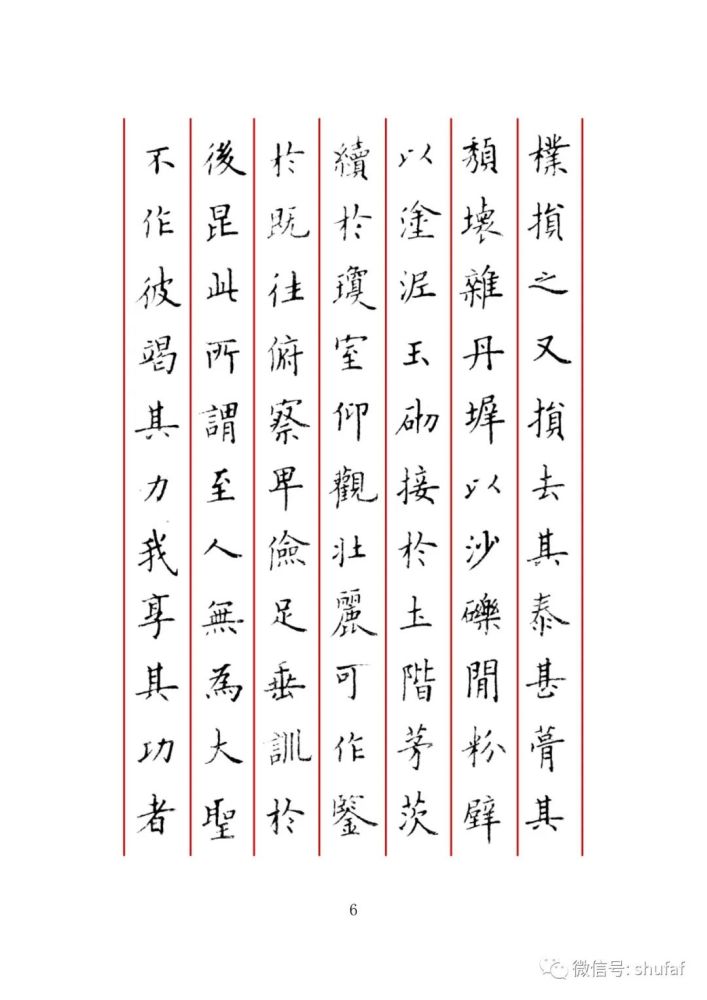 樸損之又損去其泰甚葺其
頹壞雜丹墀以沙礫間粉壁
以塗泥玉砌接於土階茅茨
續於瓊室仰觀壯麗可作鑒
於既往俯察卑儉足垂訓於
後昆此所謂至人無為大聖
不作彼竭其力我享其功者
6
微信号: shufaf